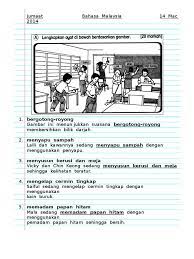 Jumaat Bahasa Malaysia 14 Mac
2014
A) Lengkapkan ayat di bawah berdasarkan gambar. (20 markah)
1. bergotong-royong
Gambar ini menunjukkan suasana bergotong-royong
membersihkan bilik darjah.
2. menyapu sampah
Laili dan kawannya sedang menyapu sampah dengan
menggunakan penyapu.
3. menyusun kerusi dan meja
Vicky dan Chin Keong sedang menyusun kerusi dan meja
sehingga kelihatan teratur.
4. mengelap cermin tingkap
Saiful sedang mengelap cermin tingkap dengan
menggunakan kain.
5. memadam papan hitam
Mala sedang memadam papan hitam dengan
menggunakan pemadam.